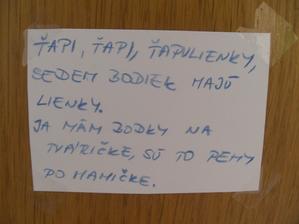 ŤAPI, ŤAPI, ŤAPULIENKY,
SEDEM BODIEK MAJÚ
LIENKY.
JA MÁM BODKY NA
TVÁRIČKE, SÚ TO PEHY
PO MAMIČKE.